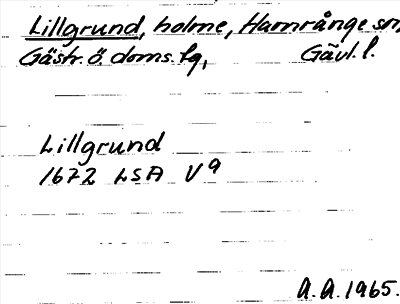 Lillgrund, holme, Hamrånge sn,
Gästr. ö. doms. lg, Gävl. l.
Lillgrund
1672 LSA V9
A.A. 1965.